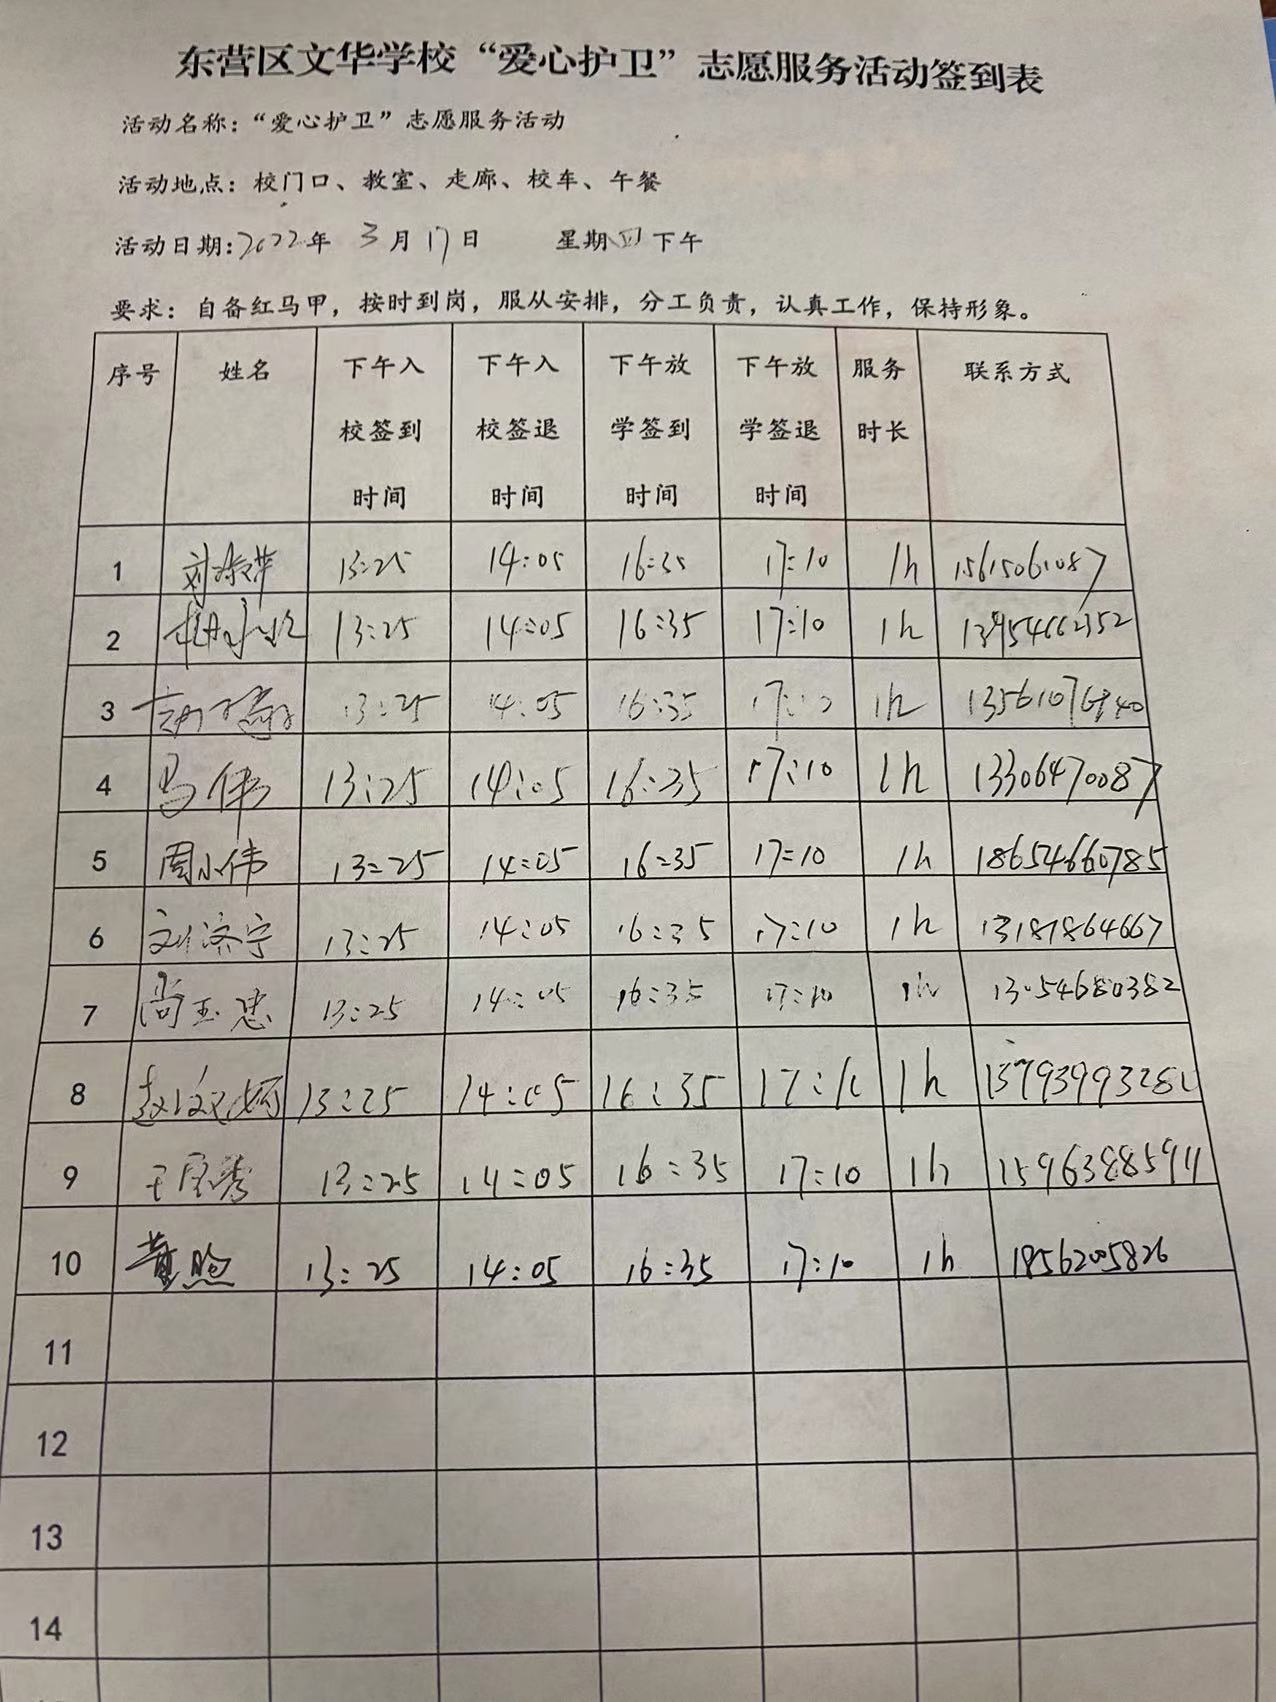 东营区文华学校“爱心护卫”志愿服务活动签到表
活动名称：“爱心护卫”志愿服务活动
活动地点：校门口、教室、走廊、校车、午餐
活动日期：2022年 3月17日 星期四下午
要求：自备红马甲，按时到岗，服从安排，分工负责，认真工作，保持形象。
序号 姓名 下午入校签到时间 下午入校签退时间 下午放学签到时间 下午放学签退时间 服务时长 联系方式
1 13:25 14:05 16:35 17:10 1h 15615061087
2 13:25 14:05 16:35 17:10 1h 13954662352
3 13:25 14:05 16:35 1h
4 马伟 13:25 14:05 16:35 17:10 1h 13306470087
5 周小伟 13:25 14:05 16:35 17:10 1h 18654660785
6 刘济宁 13:25 14:05 16:35 17:10 1h 13181864667
7 尚玉忠 13:25 14:05 16:35 17:10 1h 13054680382
8 13:25 14:05 16:35 17:10 1h
9 13:25 14:05 16:35 17:10 1h 15963885911
10 13:25 14:05 16:35 17:10 1h 18562005826
11
12
13
14